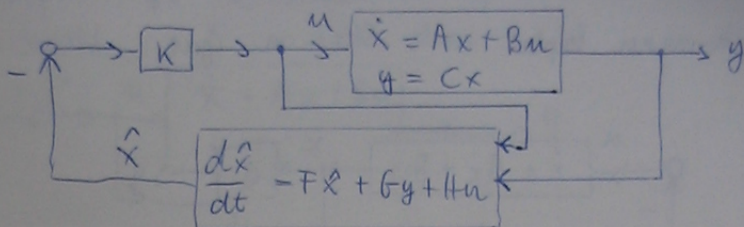 u
ẋ = Ax + Bu
y = Cx
y
K
-
x̂
dx̂/dt - Fx̂ + Gy + Hu